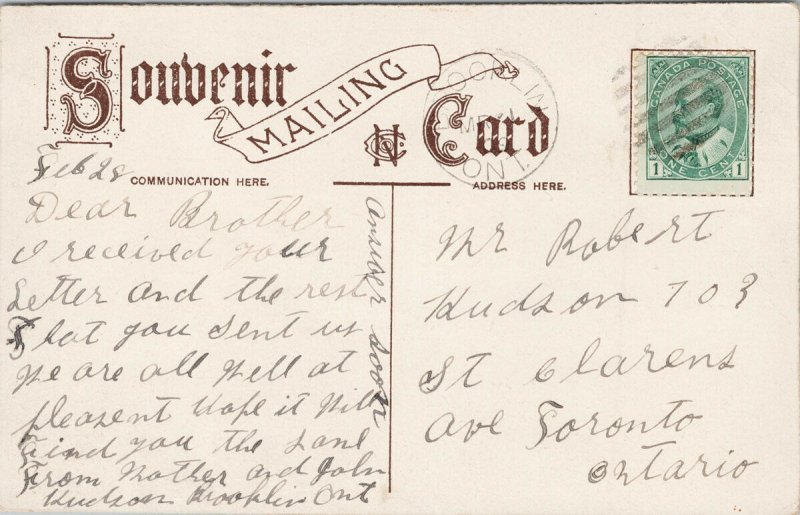 Souvenir
MAILING
Card
COMMUNICATION HERE.
ADDRESS HERE.
BROOKLIN
ONT.
CANADA POSTAGE
1 ONE CENT 1
Feb 28
Dear Brother
I received your
Letter and the rest
that you sent us
We are all Well at
pleasent Hope it Will
Find you the Same
From Mother and John
Hudson Brooklin Ont
Answer Soon
Mr Robert
Hudson 703
St Clarens
Ave Toronto
Ontario